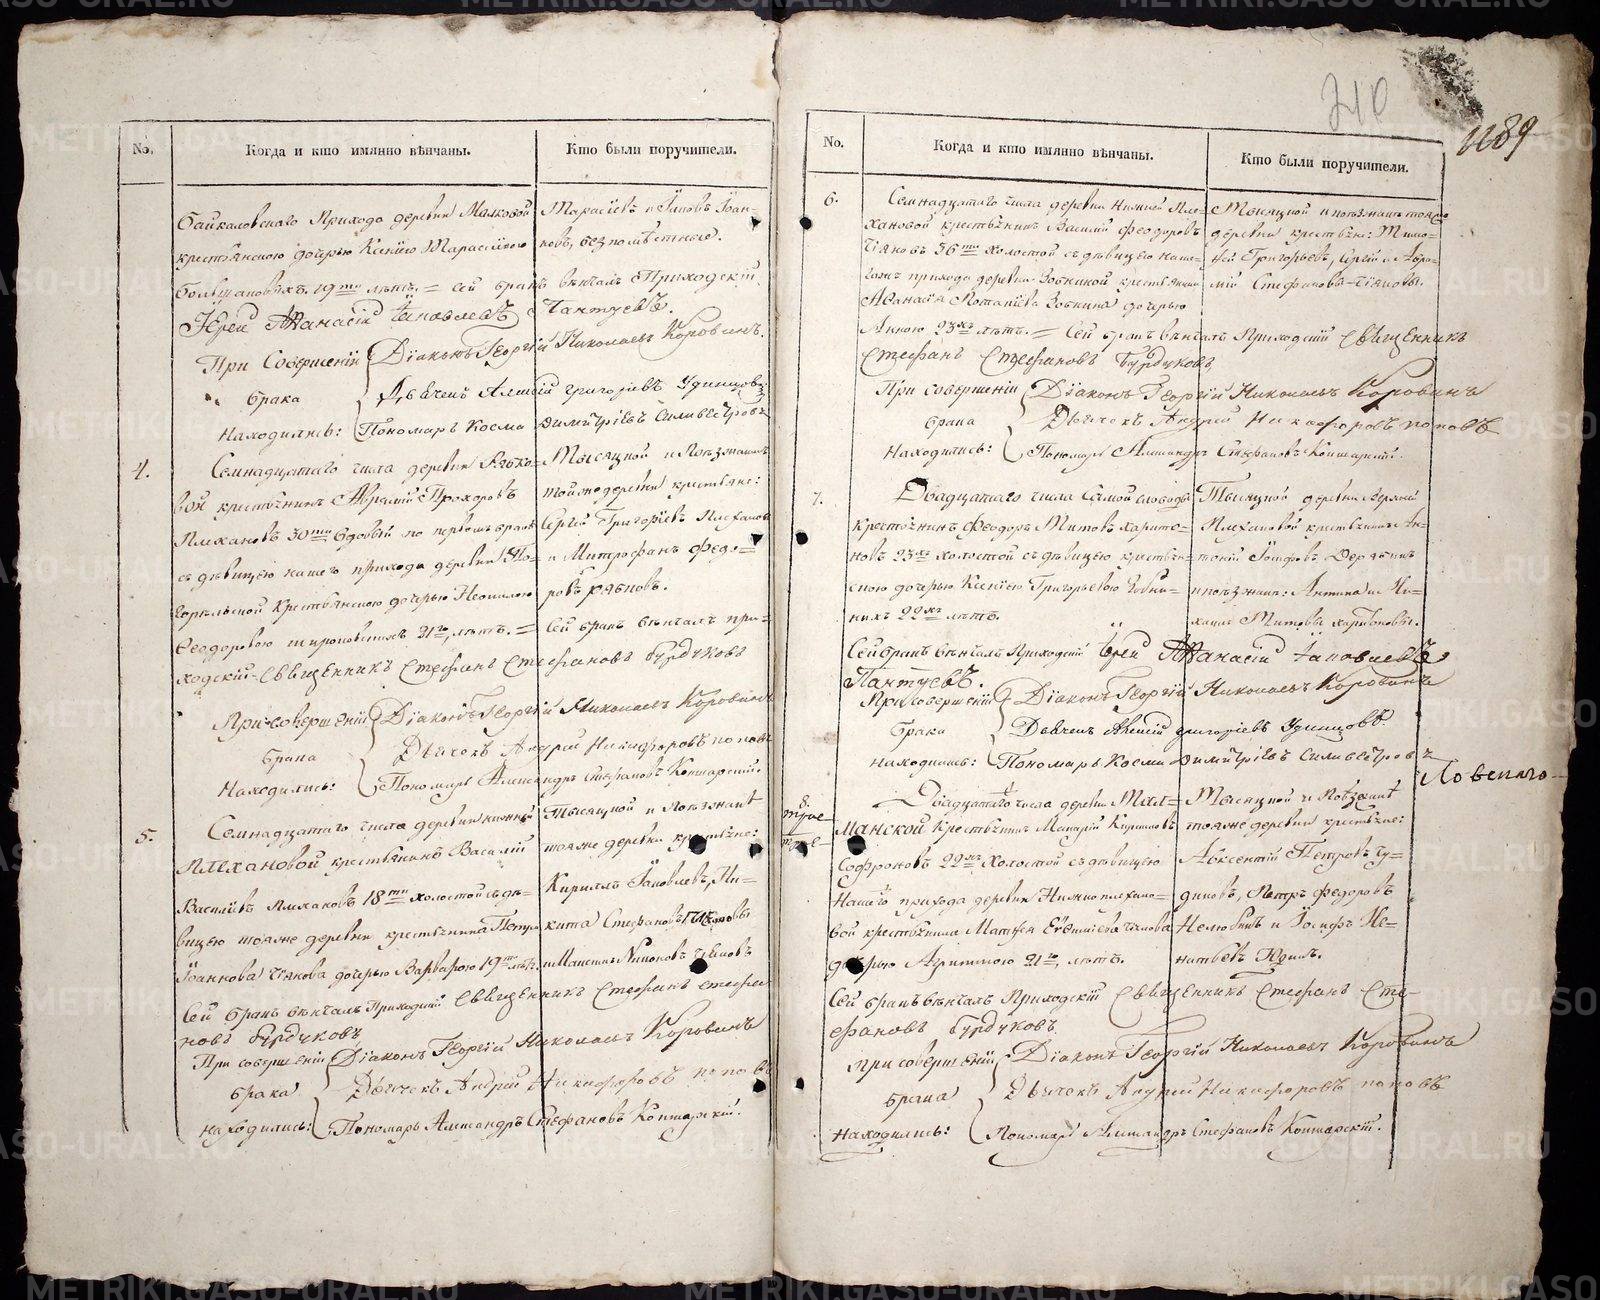 №.
Когда и кто имянно вѣнчаны.
Кто были поручители.
Байкаловскаго Прихода деревни Малковой
крестьянскою дочерью Ксенiею Тарасiевою
Большаковыхъ 19ти лѣтъ. = Сей бракъ вѣнчалъ Приходскiй
Iерей Афанасiй Iаковлевъ Пантуевъ.
Тарасiевъ и Iаковъ Iоан-
новъ, безпомѣстные.
При Совершенiи Дiаконъ Георгiй Николаевъ Коровинъ.
брака Дьячекъ Алексiй григорiевъ Удинцовъ
Находились: Пономарь Косма Димитрiевъ Сильвестровъ
4.
Семнадцатаго числа деревни
вой крестьянинъ Аврамiй Прохоровъ
Плехановъ 30ти вдовый по первомъ бракѣ
съ дѣвицею нашего прихода деревни
крестьянскою дочерью Неонилою
Феодоровою 21го, лѣтъ. = Сей бракъ вѣнчалъ при-
ходскiй Священникъ Стефанъ Стефановъ Бурдуковъ
Тысяцкой и Поѣзжане
тойжедеревни крестьяне:
Сергiй Григорiевъ Плеханов
и Митрофанъ Федо-
ровъ рябковъ.
При совершенiи Дiаконъ Георгiй Николаевъ Коровинъ
брака Дьячекъ Андрей Никифоровъ поповъ
Находились: Пономарь Александръ Стефановъ Контарскiй.
5.
Семнадцатаго числа деревни нижней
Плехановой крестьянинъ Василiй
Василiевъ Плехановъ 18ти холостой съ дѣ-
вицею тояже деревни крестьянина Петра
Iоаннова Чiякова дочерью Варварою 19ти лѣтъ.
Сей бракъ вѣнчалъ Приходскiй Священникъ Стефанъ Стефа
новъ Бурдуковъ
Тысяцкой и Поѣзжане
тояже деревни крестьяне:
Кириллъ Iаковлевъ, Ни-
кита Стефановъ
и Максимъ
При совершенiи Дiаконъ Георгiй Николаевъ Коровинъ
брака Дьячекъ Андрей Никифоровъ поповъ
находились: Пономарь Александръ Стефановъ Контарскiй.
210
1189
№.
Когда и кто имянно вѣнчаны.
Кто были поручители.
6.
Семнадцатаго числа деревни Нижней Пле-
хановой крестьянинъ Василiй Феодоровъ
Чiяковъ 36ти холостой съ дѣвицею наше-
гожъ прихода деревни Зобниной крестьянина
Афанасiя Потапiева Зобнина дочерью
Анною 23хъ лѣтъ. = Сей бракъ вѣнчалъ Приходскiй Священникъ
Стефанъ Стефановъ Бурдуковъ
Тысяцкой и поѣзжане тояже
деревни крестьяне: Тимо-
фей Григорьевъ, Сергiй и Авра-
мiй Стефановы Чiяковы.
При совершенiи Дiаконъ Георгiй Николаевъ Коровинъ
брака Дьячекъ Андрей Никифоровъ поповъ
Находились: Пономарь Александръ Стефановъ Контарскiй.
7.
Двадцатаго числа Самой слободы
крестьянинъ Феодоръ Титовъ харито-
новъ 23хъ холостой съ дѣвицею крестьян-
скою дочерью Ксенiею Григорьевою Зобни-
ныхъ 22хъ лѣтъ.
Сей бракъ вѣнчалъ Приходскiй Iерей Афанасiй Iаковлевъ
Пантуевъ.
Тысяцкой деревни Верхней
Плехановой крестьянинъ Ан-
тонiй Iосифовъ Дерябинъ
и поѣзжане: Антипа и Ми-
хаилъ Титовы харитоновы.
При совершенiи Дiаконъ Георгiй Николаевъ Коровинъ
брака Дьячекъ Алексiй григорiевъ Удинцовъ.
находились: Пономарь Косма Димитрiевъ Сильвестровъ
8.
трое
трое
Двадцатаго числа деревни
манской крестьянинъ Макарiй Кириловъ
Софроновъ 22хъ холостой съ дѣвицею
Нашего прихода деревни Нижнеплехано-
вой крестьянина Матфея Евфимiева Чiякова
дочерью 21го, лѣтъ.
Сей бракъ вѣнчалъ Приходскiй Священникъ Стефанъ Сте-
фановъ Бурдуковъ
Тысяцкой и Поѣзжане
тояже деревни крестьяне:
Авксентiй Петровъ
диновъ, Петръ Федоровъ
Нелюбинъ и Iосифъ Иг-
натьевъ
При совершенiи Дiаконъ Георгiй Николаевъ Коровинъ
брака Дьячекъ Андрей Никифоровъ поповъ
Находились: Пономарь Александръ Стефановъ Контарскiй.